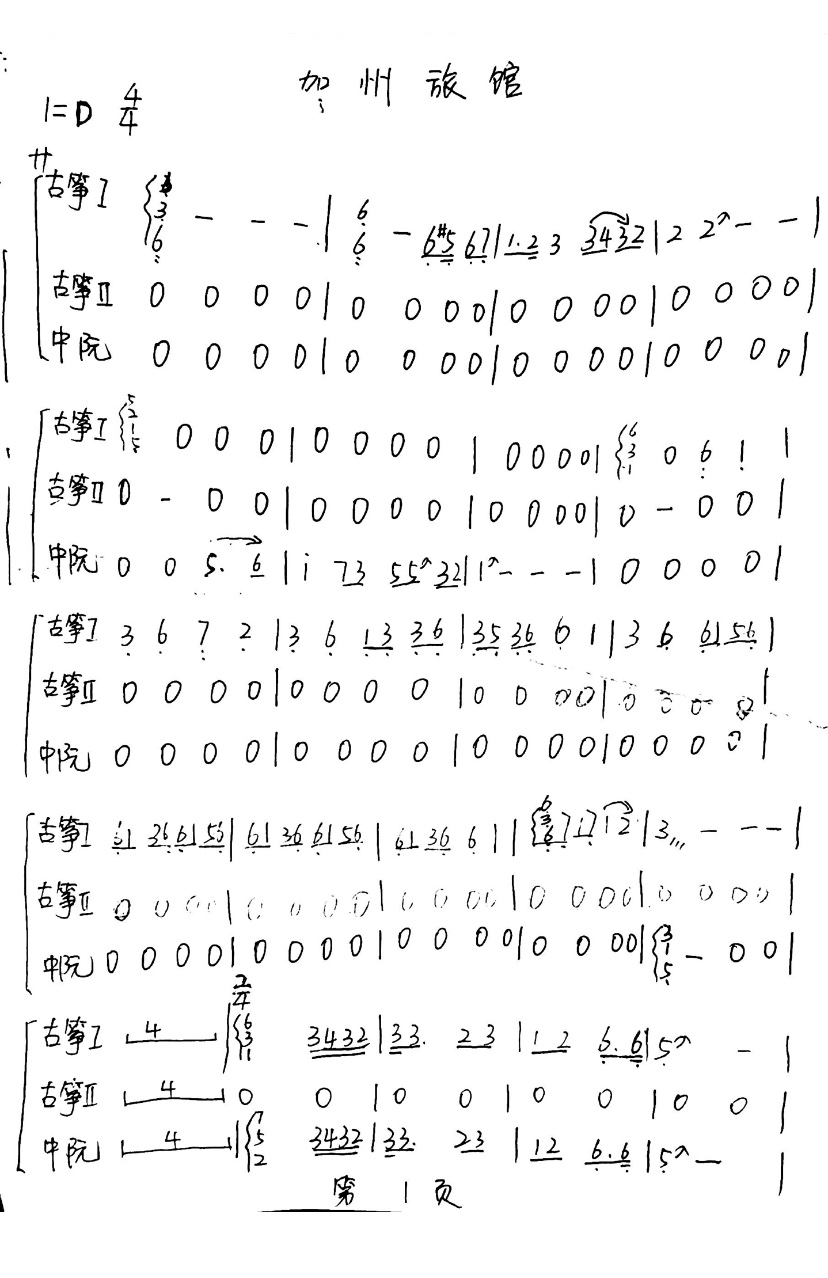 加州旅馆
1=D 4/4
サ
古筝I {6 3 6 - - - | 6 6 - 6#5 67 | 1.2 3 3432 | 2 2 - - |
古筝II 0 0 0 0 | 0 0 0 0 | 0 0 0 0 | 0 0 0 0 |
中阮 0 0 0 0 | 0 0 0 0 | 0 0 0 0 | 0 0 0 0 |
古筝I {5 2 1 5 0 0 0 | 0 0 0 0 | 0 0 0 0 | {6 3 1 0 6 1 |
古筝II 0 - 0 0 | 0 0 0 0 | 0 0 0 0 | 0 - 0 0 |
中阮 0 0 5. 6 | i 73 55 32 | 1 - - - | 0 0 0 0 |
古筝I 3 6 7 2 | 3 6 13 36 | 35 36 6 1 | 3 6 61 56 |
古筝II 0 0 0 0 | 0 0 0 0 | 0 0 0 0 | 0 0 0 0 |
中阮 0 0 0 0 | 0 0 0 0 | 0 0 0 0 | 0 0 0 0 |
古筝I 61 36 61 56 | 61 36 61 56 | 61 36 6 1 | {6 3 6 7 17 12 | 3 - - - |
古筝II 0 0 0 0 | 0 0 0 0 | 0 0 0 0 | 0 0 0 0 | 0 0 0 0 |
中阮 0 0 0 0 | 0 0 0 0 | 0 0 0 0 | 0 0 0 0 | {3 1 5 - 0 0 |
2/4
古筝I 4 | {6 3 1 3432 | 33. 23 | 12 6.6 | 5 - |
古筝II 4 0 0 | 0 0 | 0 0 | 0 0 |
中阮 4 | {5 2 3432 | 33. 23 | 12 6.6 | 5 - |
第 1 页